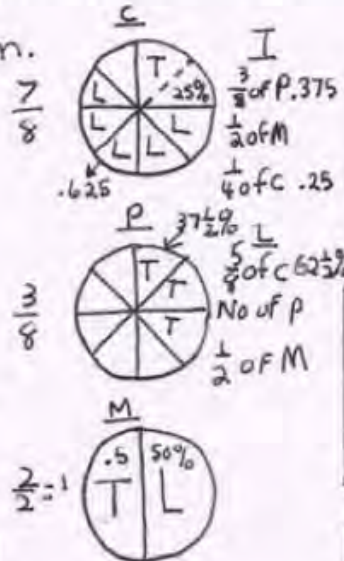 n.
C
7/8
T
25%
L
L
L
L
L
L
.625
I
3/8 of P .375
1/2 of M
1/4 of C .25
P
37 1/2%
3/8
T
T
T
L
5/8 of C 62 1/2%
No of P
1/2 of M
M
2/2 = 1
.5
50%
T
L